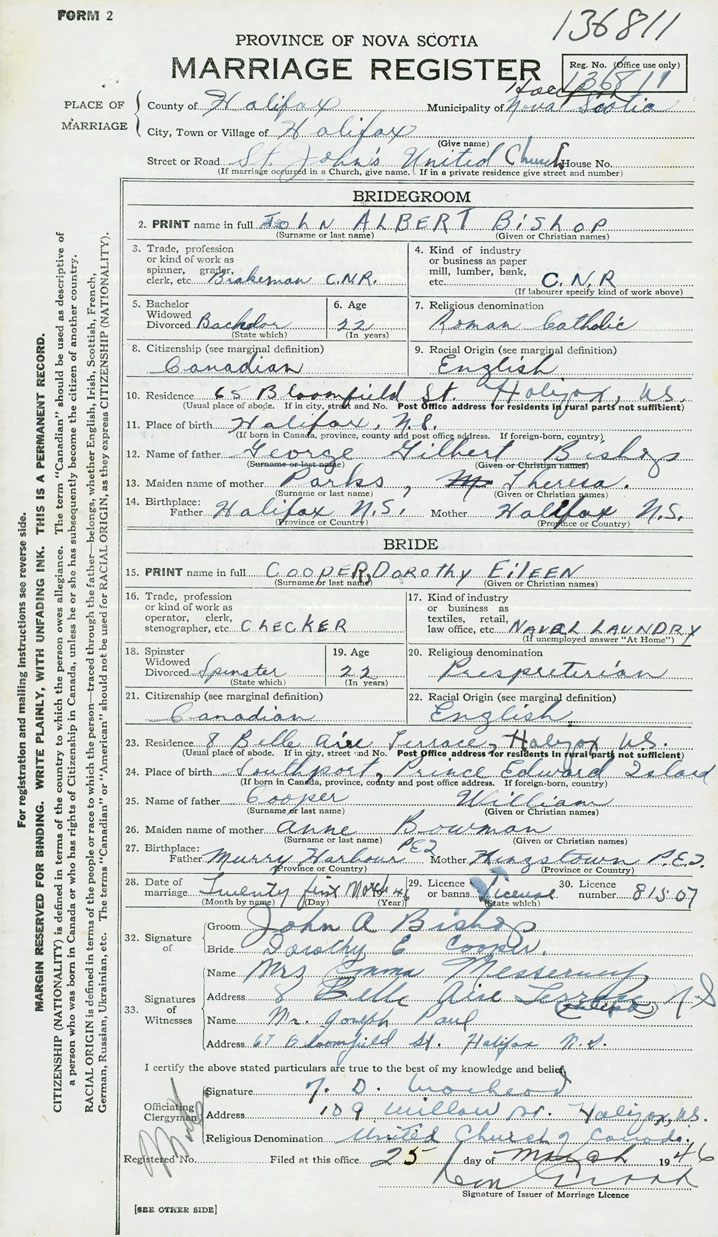 FORM 2
136811
PROVINCE OF NOVA SCOTIA
MARRIAGE REGISTER
Reg. No. (Office use only)
136811
PLACE OF MARRIAGE
County of Halifax Municipality of Nova Scotia
City, Town or Village of Halifax
(Give name)
Street or Road St. John's United Church House No.
(If marriage occurred in a Church, give name. If in a private residence give street and number)
BRIDEGROOM
2. PRINT name in full JOHN ALBERT BISHOP
(Surname or last name) (Given or Christian names)
3. Trade, profession or kind of work as spinner, grader, clerk, etc. Brakeman C.N.R.
4. Kind of industry or business as paper mill, lumber, bank, etc. C.N.R
(If labourer specify kind of work above)
5. Bachelor Widowed Divorced Bachelor
(State which)
6. Age 22
(In years)
7. Religious denomination Roman Catholic
8. Citizenship (see marginal definition) Canadian
9. Racial Origin (see marginal definition) English
10. Residence 65 Bloomfield St. Halifax, N.S.
(Usual place of abode. If in city, street and No. Post Office address for residents in rural parts not sufficient)
11. Place of birth Halifax, N.S.
(If born in Canada, province, county and post office address. If foreign-born, country)
12. Name of father George Gilbert Bishop
(Surname or last name) (Given or Christian names)
13. Maiden name of mother Parks, Theresa.
(Surname or last name) (Given or Christian names)
14. Birthplace: Father Halifax N.S. Mother Halifax N.S.
(Province or Country) (Province or Country)
BRIDE
15. PRINT name in full COOPER, DOROTHY EILEEN
(Surname or last name) (Given or Christian names)
16. Trade, profession or kind of work as operator, clerk, stenographer, etc CHECKER
17. Kind of industry or business as textiles, retail, law office, etc NAVAL LAUNDRY
(If unemployed answer "At Home")
18. Spinster Widowed Divorced Spinster
(State which)
19. Age 22
(In years)
20. Religious denomination Prespreterian
21. Citizenship (see marginal definition) Canadian
22. Racial Origin (see marginal definition) English
23. Residence 8 Belle Aire Terrace, Halifax N.S.
(Usual place of abode. If in city, street and No. Post Office address for residents in rural parts not sufficient)
24. Place of birth Southport, Prince Edward Island
(If born in Canada, province, county and post office address. If foreign-born, country)
25. Name of father Cooper William
(Surname or last name) (Given or Christian names)
26. Maiden name of mother Anne Bowman
(Surname or last name) (Given or Christian names)
27. Birthplace: Father Murry Harbour PEI Mother Kingstown P.E.I.
(Province or Country) (Province or Country)
28. Date of marriage Twenty first March 46
(Month by name) (Day) (Year)
29. Licence or banns License
(State which)
30. Licence number 81507
32. Signature of
Groom John A Bishop
Bride Dorothy E Cooper.
33. Signatures of Witnesses
Name Mrs Emma Messervey
Address 8 Belle Aire Terrace N S
Name Mr. Joseph Paul
Address 67 Bloomfield St. Halifax N.S.
I certify the above stated particulars are true to the best of my knowledge and belief,
Officiating Clergyman
Signature
Address 109 Willow St. Halifax, N.S.
Religious Denomination United Church of Canada.
Registered No. Filed at this office 25 day of March 1946
Signature of Issuer of Marriage Licence
[SEE OTHER SIDE]
For registration and mailing instructions see reverse side.
MARGIN RESERVED FOR BINDING. WRITE PLAINLY, WITH UNFADING INK. THIS IS A PERMANENT RECORD.
CITIZENSHIP (NATIONALITY) is defined in terms of the country to which the person owes allegiance. The term "Canadian" should be used as descriptive of
a person who was born in Canada or who has rights of Citizenship in Canada, unless he or she has subsequently become the citizen of another country.
RACIAL ORIGIN is defined in terms of the people or race to which the person—traced through the father—belongs, whether English, Irish, Scottish, French,
German, Russian, Ukrainian, etc. The terms "Canadian" or "American" should not be used for RACIAL ORIGIN, as they express CITIZENSHIP (NATIONALITY).